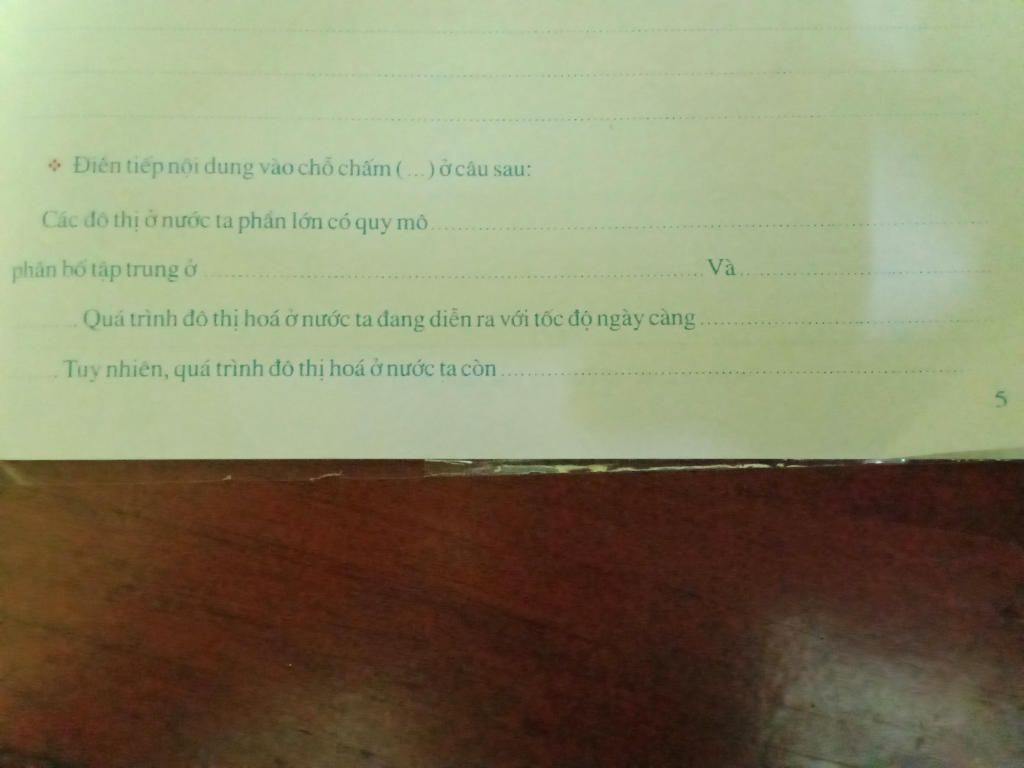 ❖ Điền tiếp nội dung vào chỗ chấm (...) ở câu sau:
Các đô thị ở nước ta phần lớn có quy mô ..............................
phân bố tập trung ở .............................. Và ..............................
.......... Quá trình đô thị hoá ở nước ta đang diễn ra với tốc độ ngày càng ..............................
.......... Tuy nhiên, quá trình đô thị hoá ở nước ta còn ..............................
5